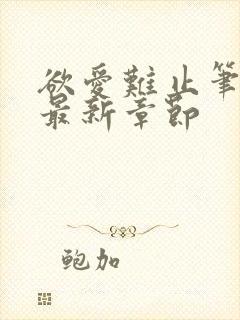 欲愛難止筆
最新章節
鲍加